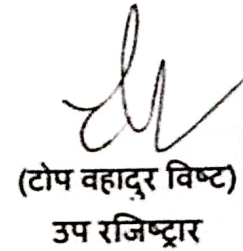 (टोप वहादुर विष्ट)
उप रजिष्ट्रार